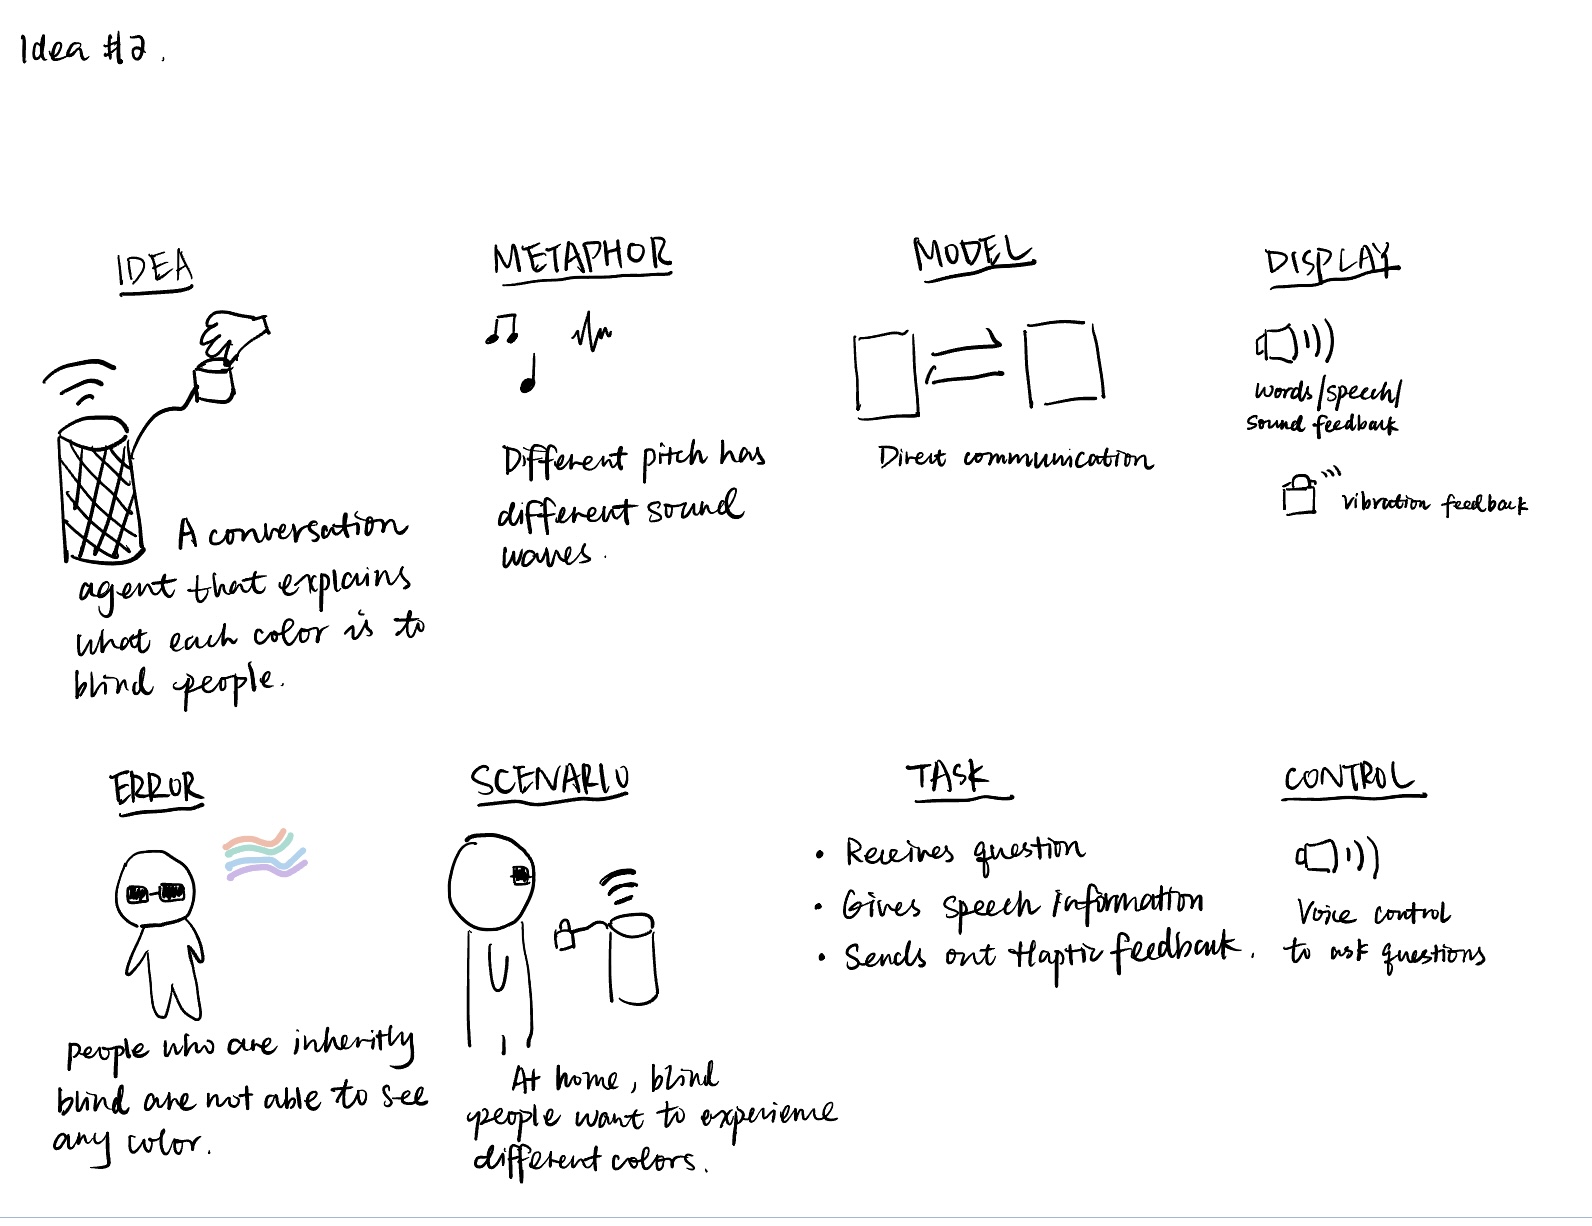 Idea #2.
IDEA
A conversation
agent that explains
what each color is to
blind people.
METAPHOR
Different pitch has
different sound
waves.
MODEL
Direct communication
DISPLAY
words/speech/
sound feedback
vibration feedback
ERROR
people who are inheritly
blind are not able to see
any color.
SCENARIO
At home, blind
people want to experience
different colors.
TASK
• Receives question
• Gives speech information
• Sends out Haptic feedback.
CONTROL
Voice control
to ask questions